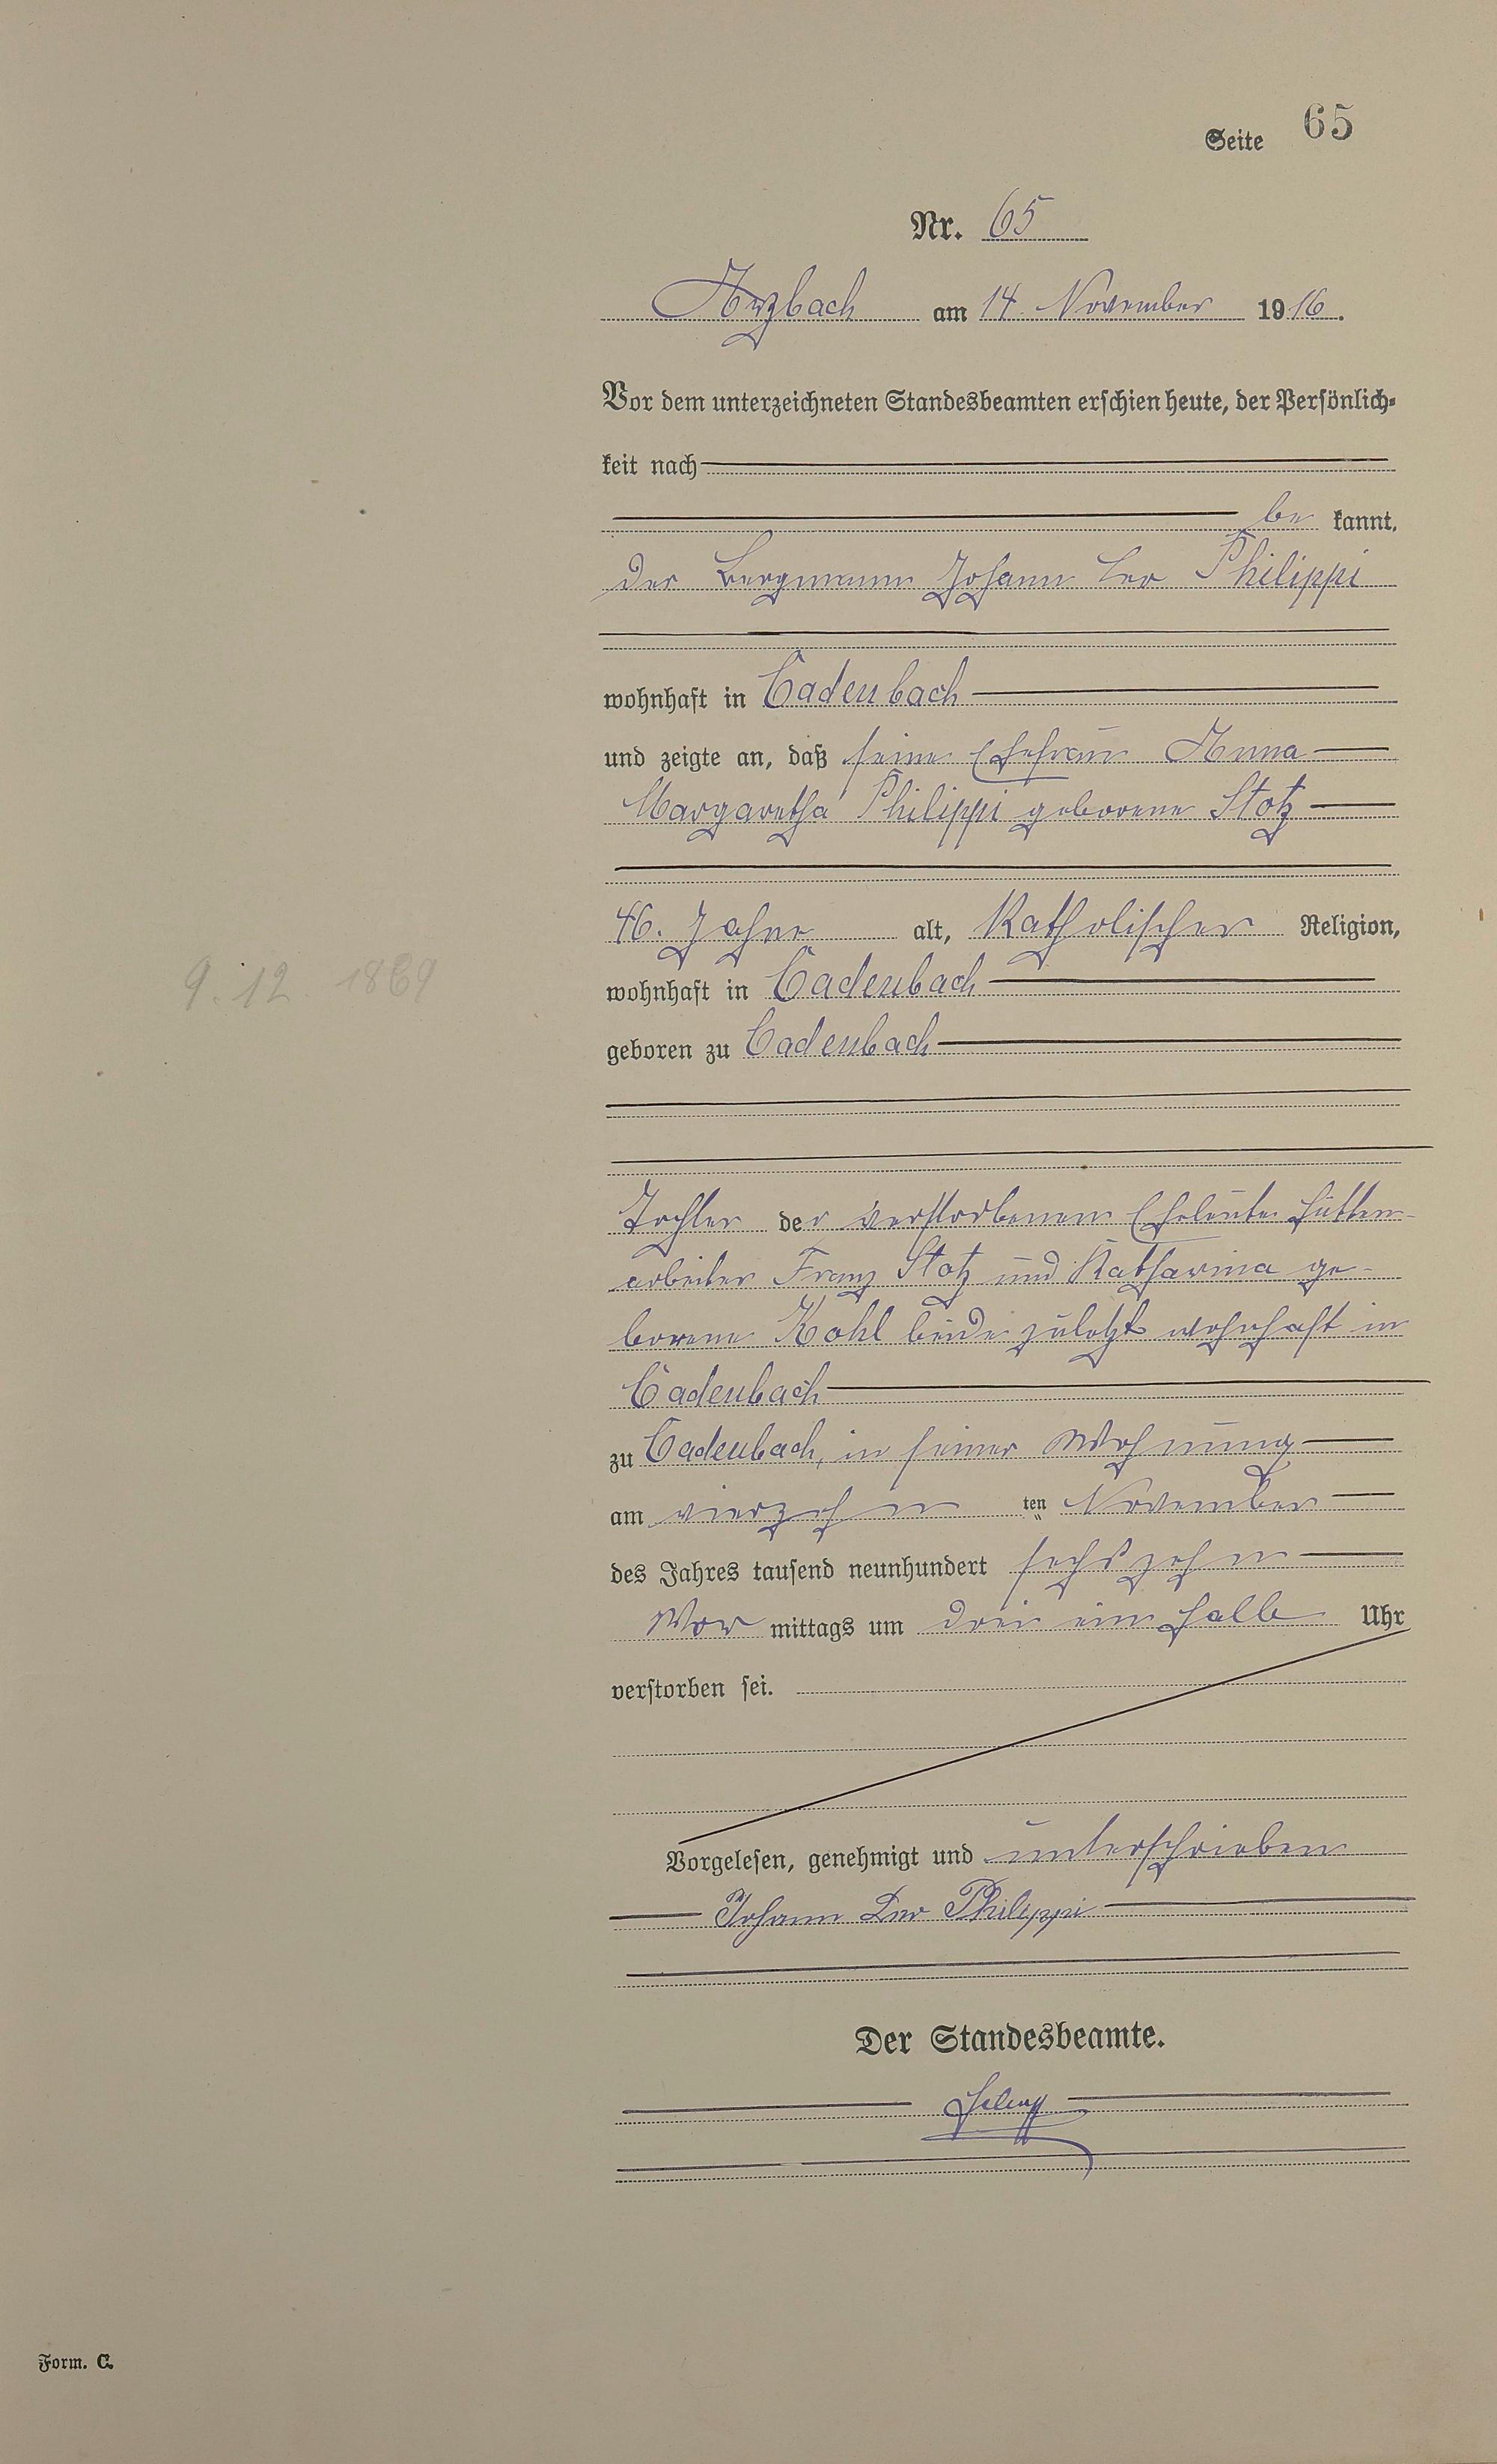 Seite 65
Nr. 65
Arzbach am 14. November 1916.
Vor dem unterzeichneten Standesbeamten erschien heute, der Persönlich-
keit nach
be kannt,
der Bergmann Johann Leo Philippi
wohnhaft in Cadenbach
und zeigte an, daß seine Ehefrau Anna
Margaretha Philippi geborene Stotz
46. Jahre alt, Katholischer Religion,
9. 12. 1869
wohnhaft in Cadenbach
geboren zu Cadenbach
Tochter der verstorbenen Eheleute Hütten-
arbeiter Franz Stotz und Katharina ge-
borene Kohl beide zuletzt wohnhaft in
Cadenbach
zu Cadenbach, in seiner Wohnung
am vierzehn ten November
des Jahres tausend neunhundert sechszehn
Vor mittags um drei ein halb Uhr
verstorben sei.
Vorgelesen, genehmigt und unterschrieben
Johann Leo Philippi
Der Standesbeamte.
Form. C.